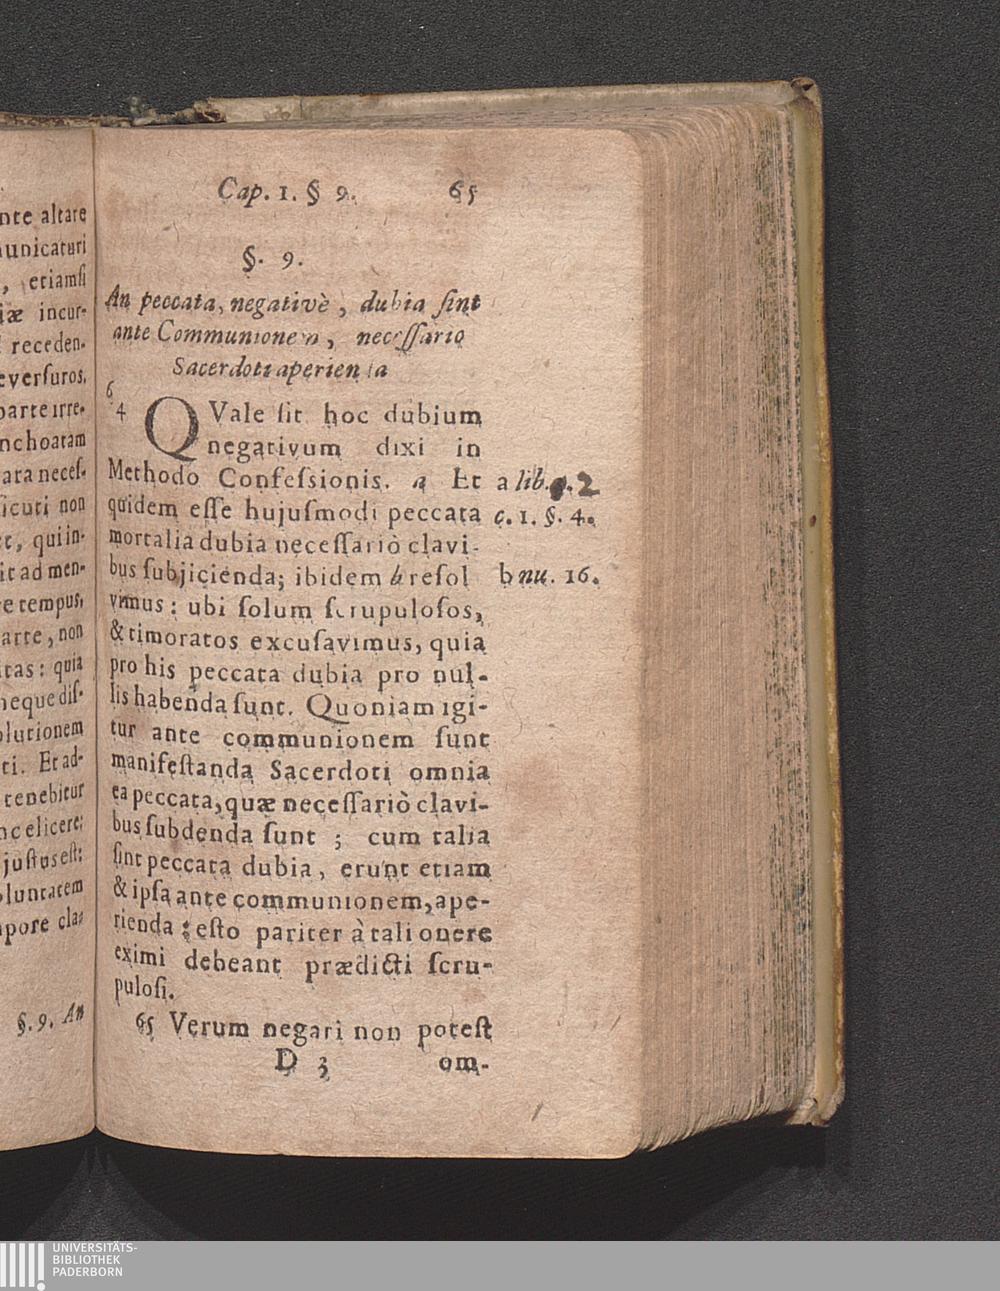 nte altare
municaturi
, etiamsi
iæ incur-
receden-
eversuros,
parte irre-
nchoatam
ata neces-
sicuti non
et, qui in-
it ad men-
e tempus,
arte, non
itas: quia
neque dis-
olutionem
ti. Et ad-
tenebitur
nc elicere:
justus est:
oluntatem
mpore cla-
§. 9. An
Cap. 1. § 9. 65
§. 9.
An peccata, negativè, dubia ſint
ante Communionem, neceſſario
Sacerdoti aperienda
64 QVale ſit hoc dubium
negativum dixi in
Methodo Confeſsionis. a Et
quidem eſſe hujuſmodi peccata
mortalia dubia neceſſariò clavi-
bus ſubjicienda; ibidem b reſol
vimus: ubi ſolum ſcrupuloſos,
& timoratos excuſavimus, quia
pro his peccata dubia pro nul-
lis habenda ſunt. Quoniam igi-
tur ante communionem ſunt
manifeſtanda Sacerdoti omnia
ea peccata, quæ neceſſariò clavi-
bus ſubdenda ſunt; cum talia
ſint peccata dubia, erunt etiam
& ipſa ante communionem, ape-
rienda: eſto pariter à tali onere
eximi debeant prædicti ſcru-
puloſi.
65 Verum negari non poteſt
D 3 om-
a lib. 2
c. 1. §. 4.
b nu. 16.
UNIVERSITÄTS-
BIBLIOTHEK
PADERBORN